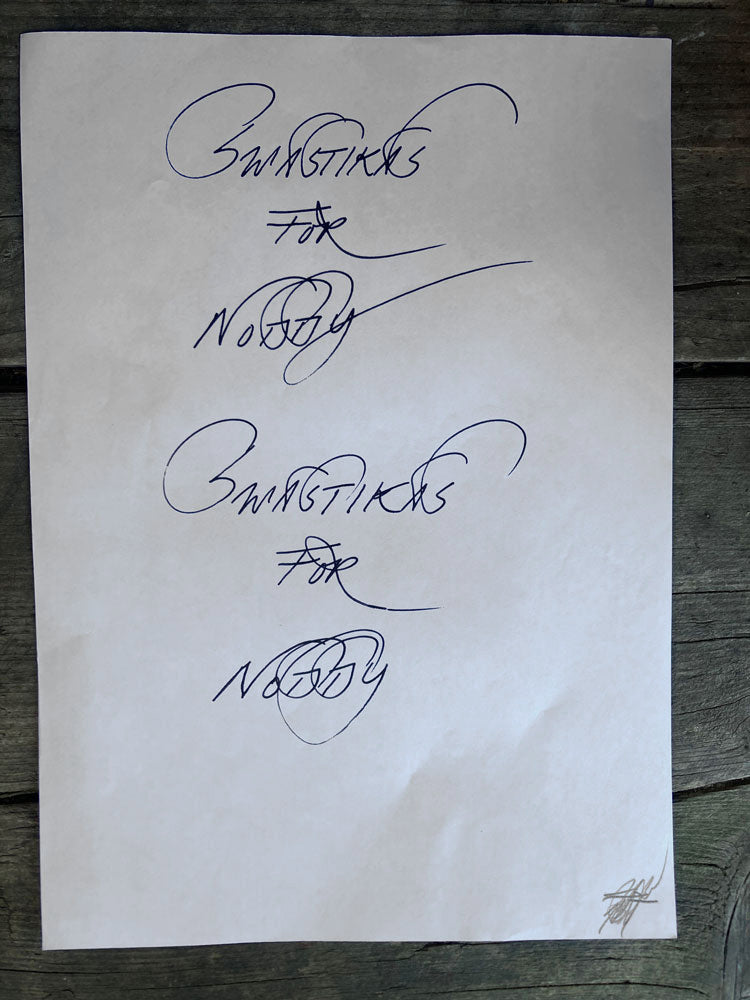 SWASTIKAS
FOR
NODDY
SWASTIKAS
FOR
NODDY